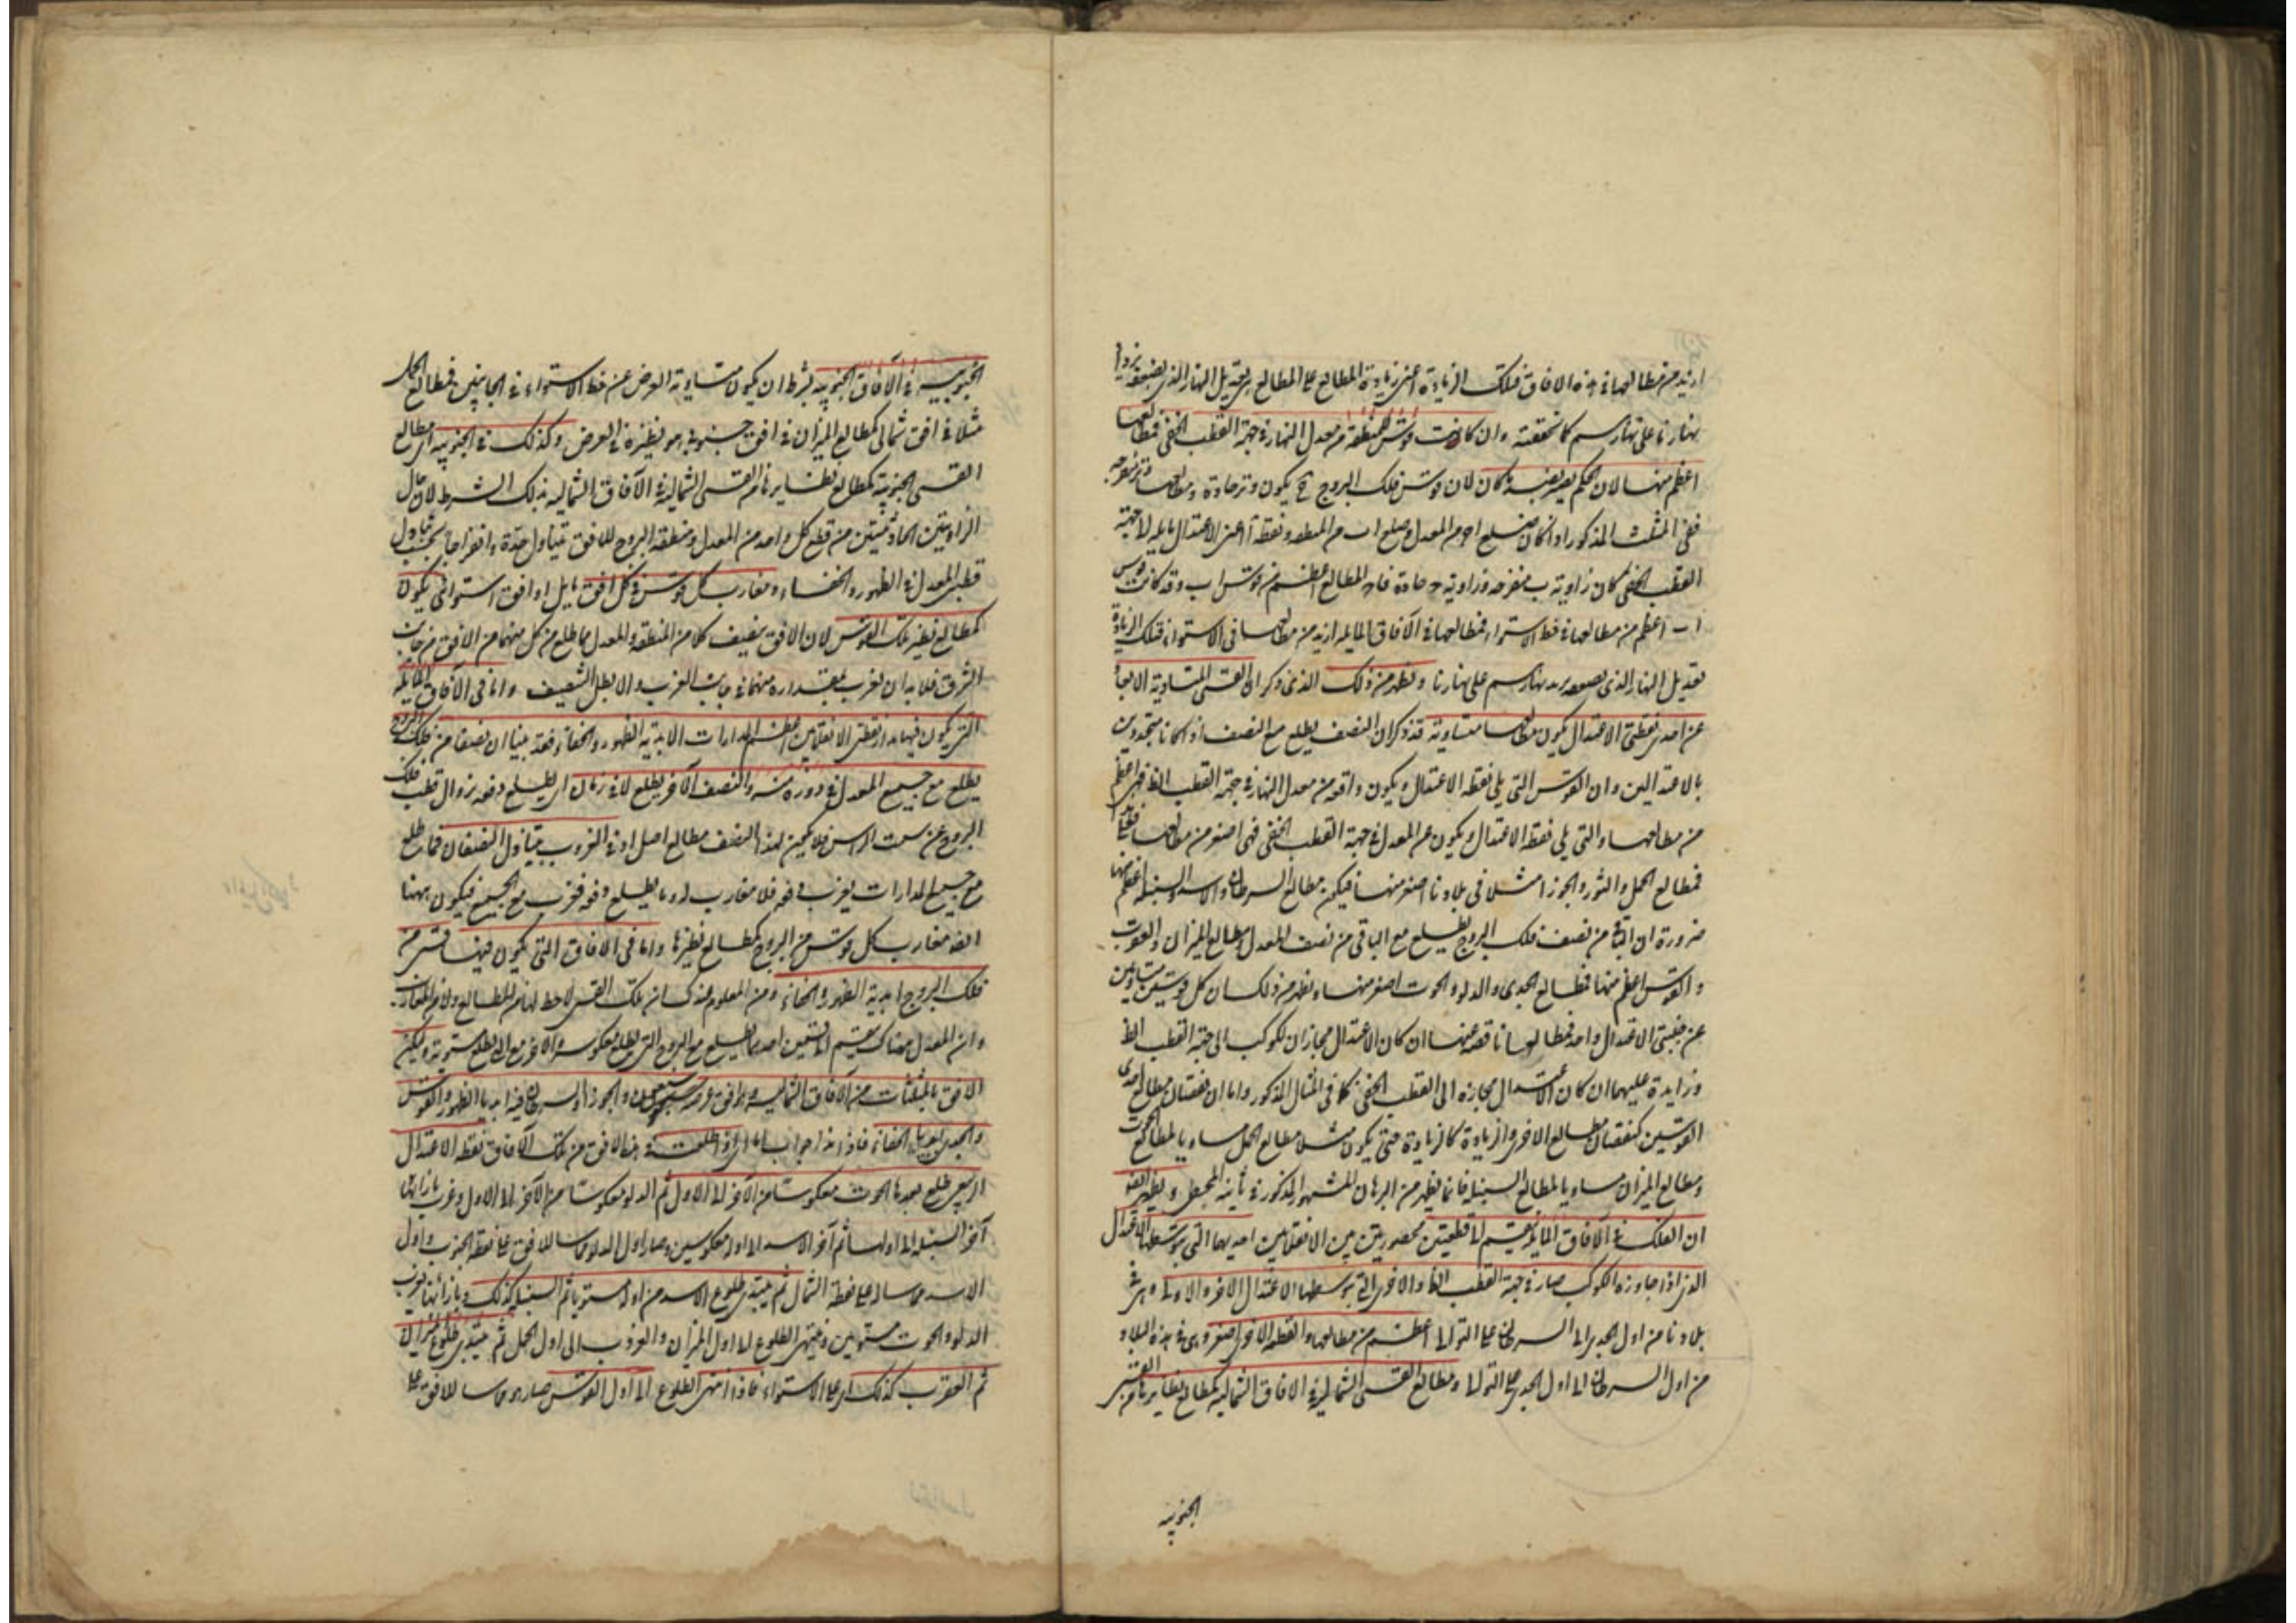 ازيد من مطالعها في هذه الافاق فتلك الزيادة اعني زيادة المطالع على المطالع هي تعديل النهار الذي بعضه يزداد
نهارنا على نهارهم كما تحققته وان كانت قوس المنطقة من معدل النهار في جهة القطب الخفي فمطالعها
اعظم منها لان الحكم بعينه كان لان قوس فلك البروج ح يكون وتر حادة ومطالعها وتر منفرجة
ففي المثلث المذكور اذا كان ضلع ا ح من المعدل وضلع ا ب من المنطقة ونقطة آ اعني الاعتدال مايلي جهة
القطب الخفي كان زاوية ب منفرجة وزاوية ح حادة فاح المطالع اعظم من قوس اب وقد كانت قوس
ا ب اعظم من مطالعها في خط الاستواء فمطالعها في الآفاق المايلة ازيد من مطالعها في الاستواء فتلك الزيادة
تعديل النهار الذي نهارهم على نهارنا ويظهر من ذلك الذي ذكر ان القسي المتساوية الابعاد
عن احدى نقطتي الاعتدال يكون مطالعها متساوية قد ذكر ان النصف يطلع مع النصف اذا كانا متحدودين
بالاعتدالين وان القوس التي يلي نقطة الاعتدال ويكون واقعة من معدل النهار في جهة القطب الظ فهي اعظم
من مطالعها والتي يلي نقطة الاعتدال ويكون عن المعدل في جهة القطب الخفي فهي اصغر من مطالعها
فمطالع الحمل والثور والجوزا مثلا في بلادنا اصغر منها فيكون مطالع السرطان والاسد والسنبلة اعظم منها
ضرورة ان الباقي من نصف فلك البروج يطلع مع الباقي من نصف المعدل ومطالع الميزان والعقرب
والقوس اعظم منها فمطالع الجدى والدلو والحوت اصغر منها ويظهر من ذلك ان كل قوسين متساويتين
عن جنبتي الاعتدال واحد فمطالعها ناقصة عنها ان كان الاعتدال مجازا لكوكب الى جهة القطب الظ
وزايدة عليهما ان كان الاعتدال مجازه الى القطب الخفي كما في المثال المذكور واما ان نقصان مطالع احدى
القوسين كنقصان مطالع الاخرى والزيادة كالزيادة حتى يكون مثلا مطالع الحمل مساويا لمطالع الحوت
ومطالع الميزان مساويا لمطالع السنبلة فانما يظهر من البرهان المشهور المذكور في ثانية المجسطي ويظهر ايضا
ان الفلك في الآفاق المايلة ينقسم الى قطعتين محصورتين بين الانقلابين احديهما التي يتوسطها الاعتدال
الذي اذا جاوزه الكوكب صار في جهة القطب الظ والاخرى التي يتوسطها الاعتدال الاخر والاولى وهي في
بلادنا من اول الجدى الى السرطان على التوالي اعظم من مطالعها والقطعة الاخرى اصغر وهي في هذه البلاد
من اول السرطان الى اول الجدى على التوالي ومطالع القسي الشمالية في الافاق الشمالية كمطالع نظايرها من القسي
الجنوبية
الجنوبية في الآفاق الجنوبية بشرط ان يكون متساوية العرض عن خط الاستواء في الجانبين فمطالع الحمل
مثلا في افق شمالي كمطالع الميزان في افق جنوبي هو نظيره في العرض وكذلك في الجنوبية اي مطالع
القسى الجنوبية كمطالع نظايرها من القسى الشمالية في الآفاق الشمالية بذلك الشرط لان حال
الزاويتين الحادثتين من قطع كل واحد من المعدل ومنطقة البروج للافق يتبادل حدة وانفراجا بحسب تبادل
قطبي المعدل في الظهور والخفاء ومغارب كل قوس في كل افق مايل او افق استوائي يكون
كمطالع نظير تلك القوس لان الافق ينصف كلا من المنطقة والمعدل فما طلع من كل منهما من الافق من جانب
الشرق فلا بد ان يغرب بمقداره منهما في جانب الغرب والا بطل التنصيف واما في الآفاق المايلة
التي يكون فيها مدار نقطتي الانقلابين اعظم المدارات الابدية الظهور والخفاء فقد بينا ان نصفا من فلك البروج
يطلع مع جميع المعدل في دورة منه والنصف الآخر يطلع لا في زمان اي يطلع دفعة بزوال قطب فلك
البروج عن سمت الراس فلا يكون لهذا النصف مطالع اصلا وفي الغروب يتبادل النصفان فما طلع
مع جميع المدارات يغرب دفعة فلا مغارب له وما يطلع دفعة فيغرب مع الجميع فيكون ههنا
ايضا مغارب كل قوس من البروج كمطالع نظيرها واما في الافاق التي يكون فيها قسي من
فلك البروج ابدية الظهور والخفاء ومن المعلوم هناك ان تلك القسي لا حظ لها من المطالع ولا من المغارب
وان المعدل هناك ينقسم الى قسمين احدهما يطلع مع البروج التي يطلع معكوسة والآخر مع التي يطلع مستوية وليكن
الافق بالمثلثات من الآفاق الشمالية وهو افق والجوزا والسرطان فيه ابديا الظهور والقوس
والجدى ابديا الخفاء فاذا طلعت في هذا الافق من تلك الآفاق نقطة الاعتدال
الربيعي طلع بعدها الحوت معكوسا من الآخر الى الاول ثم الدلو معكوسا من الآخر الى الاول وغرب بازائها
آخر السنبلة الى اولها ثم آخر الاسد الى اوله معكوسين وصار اول الدلو مماسا للافق على نقطة الجنوب واول
الاسد مماسا له على نقطة الشمال ثم يبتدئ طلوع الاسد من اوله مستويا ثم السنبلة كذلك وبازائهما يغرب
الدلو والحوت مستويين وينتهي الطلوع الى اول الميزان والغروب الى اول الحمل ثم يبتدئ طلوع الميزان
ثم العقرب كذلك اي على الاستواء فاذا انتهى الطلوع الى اول القوس صار مماسا للافق على